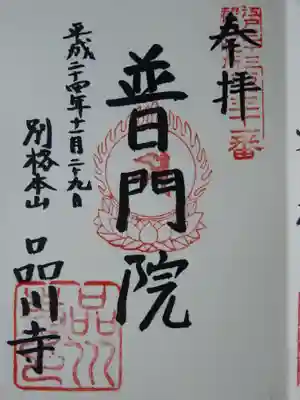 奉拝
江戸三十三観音第三十一番
普門院
平成二十四年十一月二十九日
別格本山
品川寺
品川寺